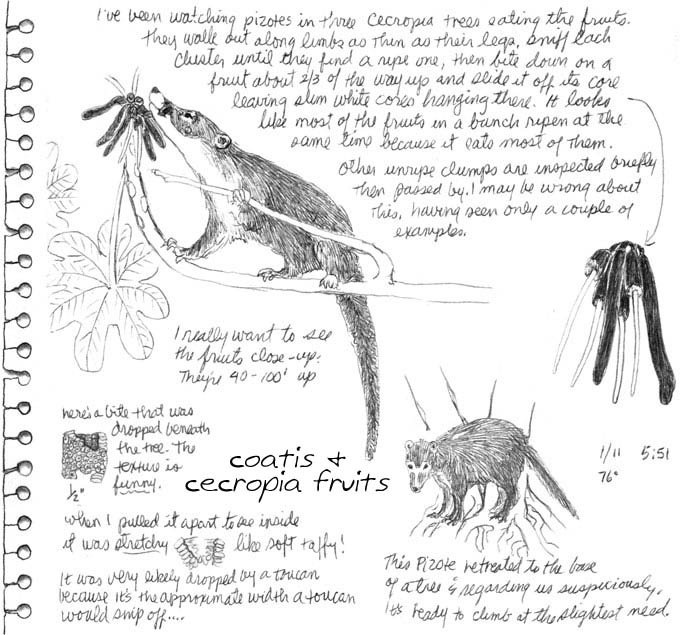 I've been watching pizotes in three Cecropia trees eating the fruits.
They walk out along limbs as thin as their legs, sniff each
cluster until they find a ripe one, then bite down on a
fruit about 2/3 of the way up and slide it off its core
leaving slim white cores hanging there. It looks
like most of the fruits in a bunch ripen at the
same time because it eats most of them.
Other unripe clumps are inspected briefly
then passed by. I may be wrong about
this, having seen only a couple of
examples.
I really want to see
the fruits close-up.
They're 40-100' up
here's a bite that was
dropped beneath
the tree. The
texture is
funny.
1/2"
coatis &
cecropia fruits
1/11 5:51
76°
When I pulled it apart to see inside
it was stretchy like soft taffy!
It was very likely dropped by a toucan
because it's the approximate width a toucan
would snip off....
This Pizote retreated to the base
of a tree & regarding us suspiciously,
it's ready to climb at the slightest need.